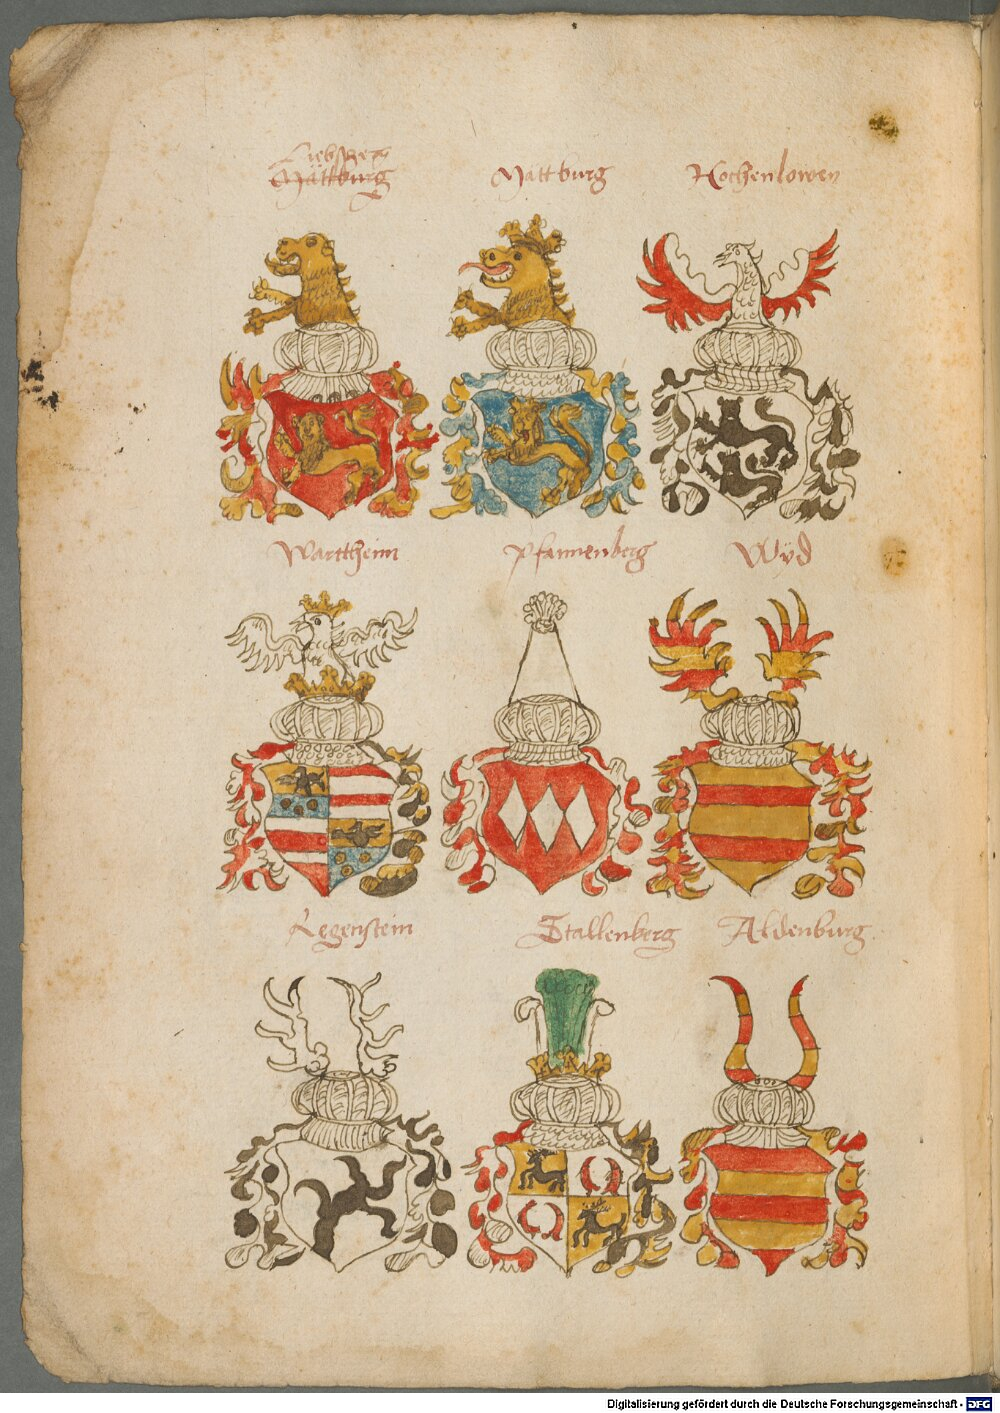 Liebspe
Mattburg
Mattburg
Hochenlowen
Warttheim
Pfannenberg
Wÿd
Regenstein
Stallenberg
Aldenburg
Digitalisierung gefördert durch die Deutsche Forschungsgemeinschaft - DFG